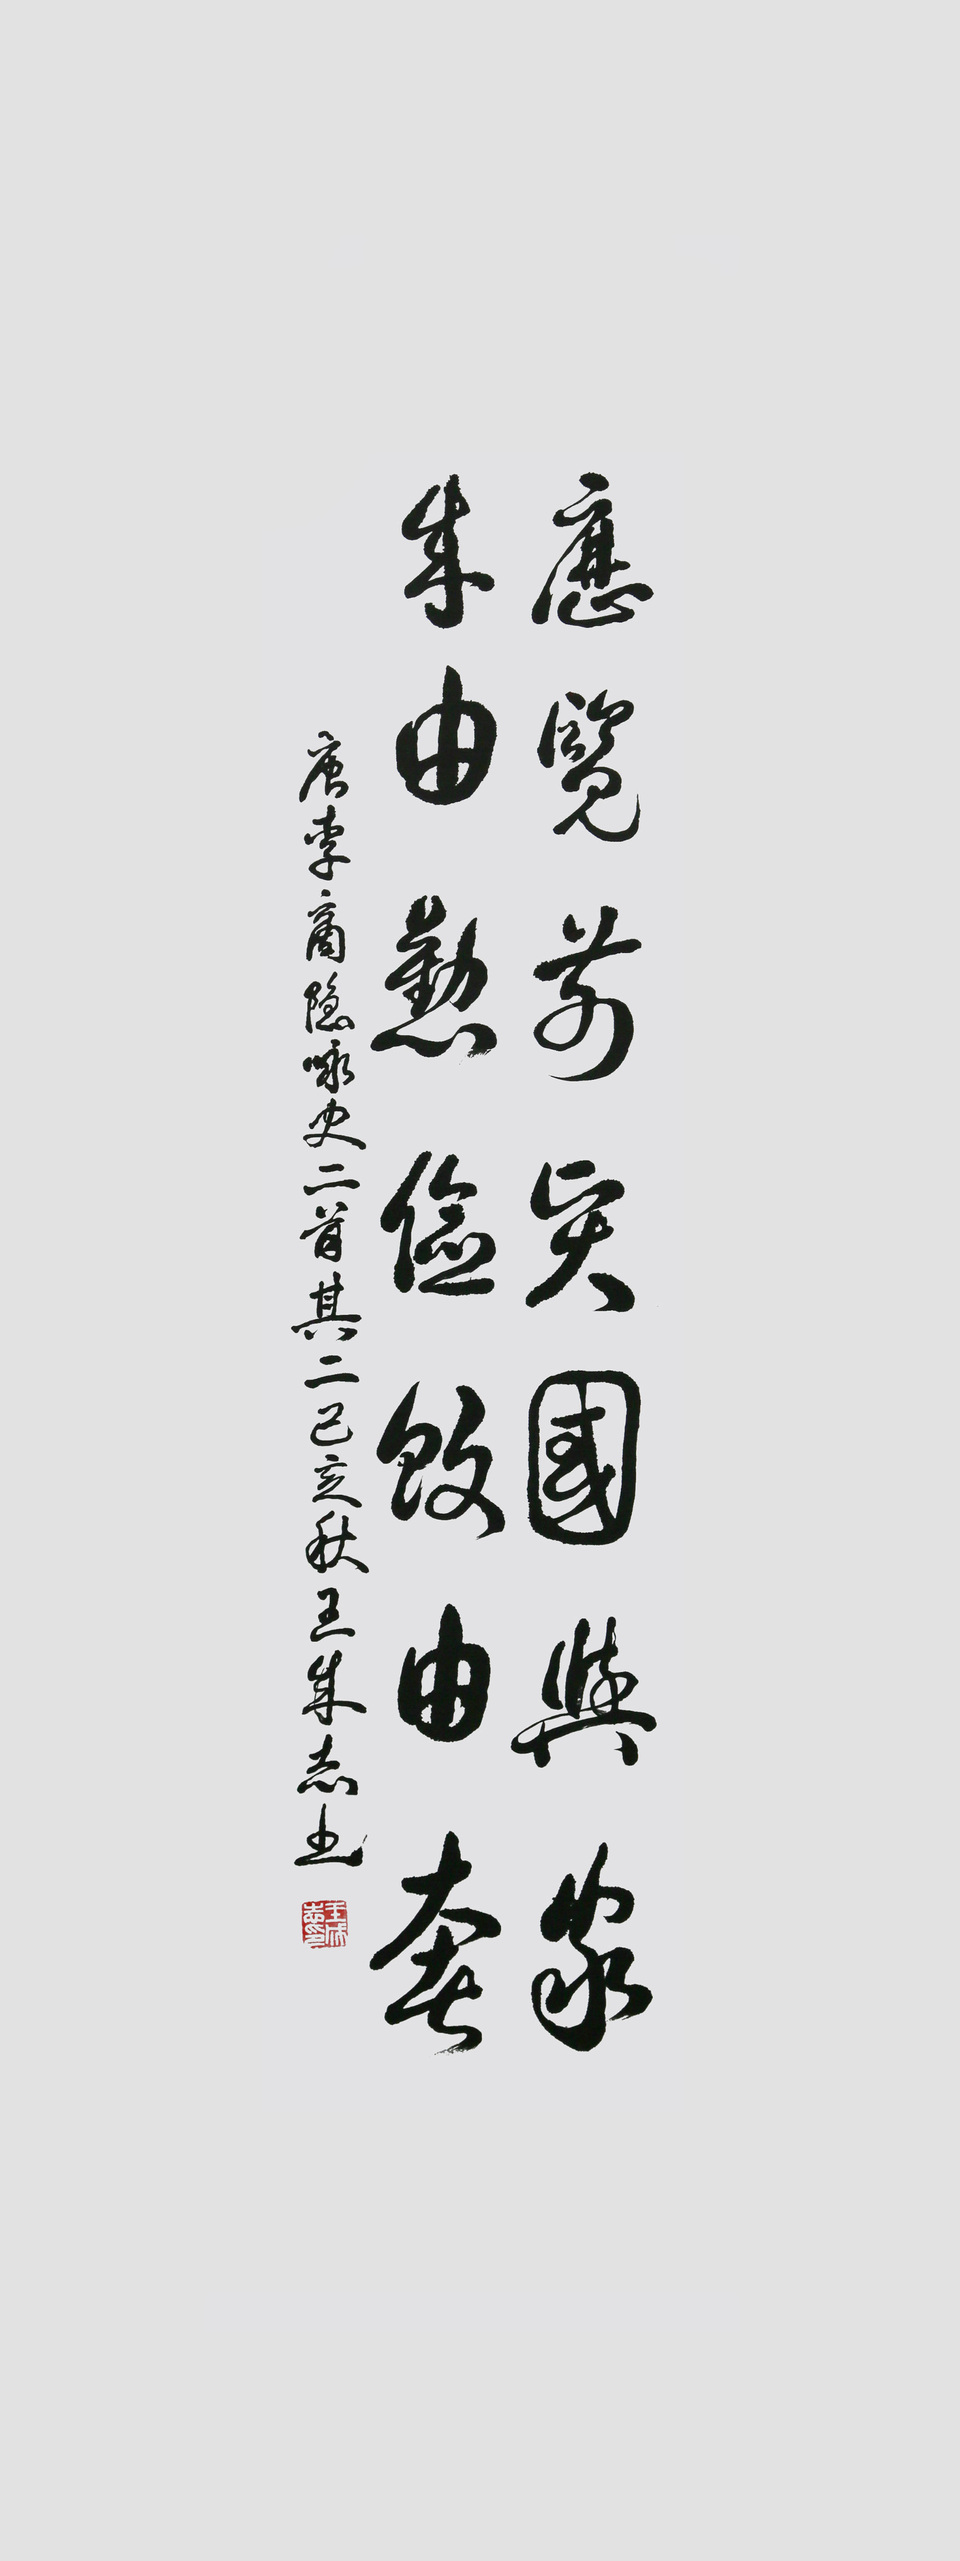 歷覽前賢國與家
成由懃儉敗由奢
唐李商隐咏史二首其二己亥秋王成志书
王成志印